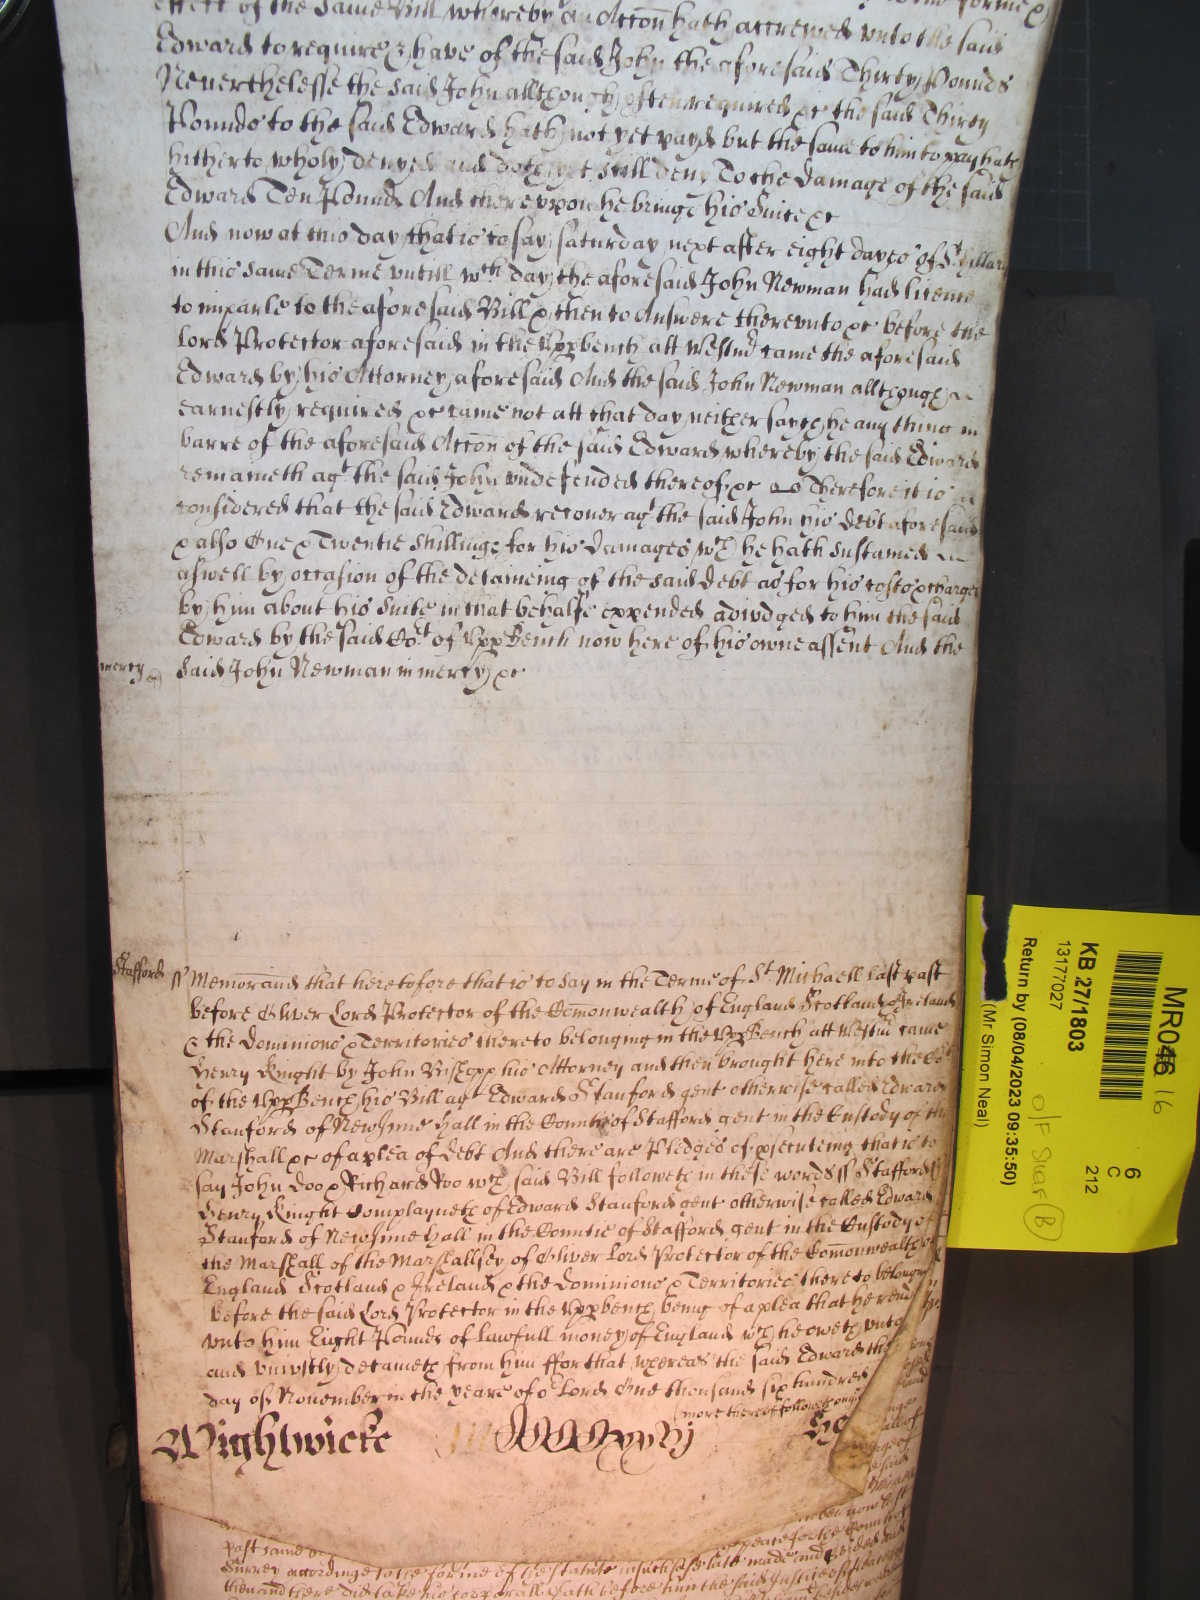 effect of the same Bill whereby an Accon hath accrewed unto the said
Edward to require & have of the said John the aforesaid Thirty Pounds
Neverthelesse the said John allthough often required &c the said Thirty
Pounds to the said Edward hath not yet payd but the same to him to pay hath
hitherto wholy denyed and doth yet still deny To the damage of the said
Edward Ten Pounds And thereupon he bringe his Suite &c
And now at this day that is to say Saturday next after eight dayes of St Hillary
in this same Terme untill wch day the aforesaid John Newman had licence
to imparle to the aforesaid Bill & then to Answere thereunto &c before the
Lord Protector aforesaid in the Uppbench att Westmr came the aforesaid
Edward by his Attorney aforesaid And the said John Newman allthough
earnestly required &c came not att that day neither sayth he any thing in
barre of the aforesaid Accon of the said Edward whereby the said Edward
remaineth agt the said John undefended thereof &c Therefore it is
considered that the said Edward recover agt the said John his debt aforesaid
& also One & Twentie shillings for his damages wch he hath sustained
aswell by occasion of the detaineing of the said debt as for his costs & charges
by him about his Suite in that behalfe expended adiudged to him the said
Edward by the said Cot of Uppbench now here of his owne assent And the
mercy said John Newman in mercy &c
Stafford ss Memorand that heretofore that is to say in the Terme of St Michaell last past
before Oliver Lord Protector of the Comonwealth of England Scotland & Ireland
& the dominions & Territories thereto belonging in the UppBench att Westmr came
Henry Knight by John Bishopp his Attorney and then brought here into the Cot
of the UppBench his Bill agt Edward Stanford gent otherwise called Edward
Stanford of New Inne Hall in the Countie of Stafford gent in the Custody of the
Marshall &c of a plea of debt And there are Pledges of psecuteing that is to
say John Doo & Richard Roo wch said Bill followeth in these words ss Stafford ss
Henry Knight Complayneth of Edward Stanford gent otherwise called Edward
Stanford of New Inne Hall in the Countie of Stafford gent in the Custody of
the Marshall of the Marshallsey of Oliver Lord Protector of the Comonwealth of
England Scotland & Ireland & the dominions & Territories thereto belonging
before the said Lord Protector in the Uppbench being of a plea that he render
unto him Eight Pounds of lawfull money of England wch he oweth unto
and uniustly detaineth from him ffor that whereas the said Edward the
day of November in the yeare of or Lord One thousand six hundred
(more thereof followeth
Wightwicke
past
Surrey accordinge to the forme of the statute in such case late made and
then and there did take his corporall oath before him the said Justice
MR046 16
KB 27/1803
13177027
Return by (08/04/2023 09:35:50)
(Mr Simon Neal)
6
C
212
B